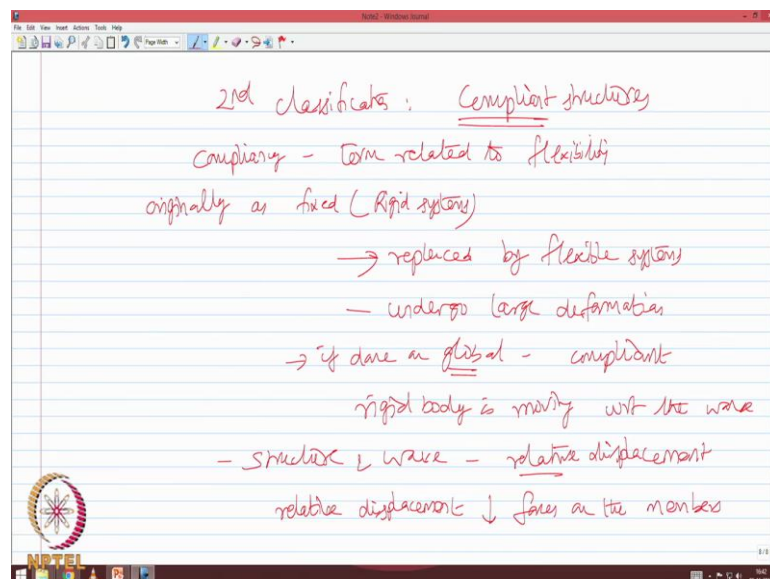 Note2 - Windows Journal
File Edit View Insert Actions Tools Help
Page Width
2nd classification : Compliant structures
compliancy - term related to flexibility
originally as fixed (Rigid systems)
→ replaced by flexible systems
- undergo large deformations
→ if done on global - compliant
rigid body is moving wrt the wave
- structure & wave - relative displacement
relative displacement ↓ forces on the members
NPTEL
8/8
1642